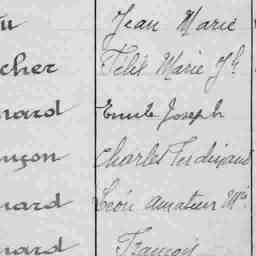 u Jean Marie
cher Felix Marie Jh
nard Emile Joseph
nçon Charles Ferdinand
nard Léon amateur Mie
nard François